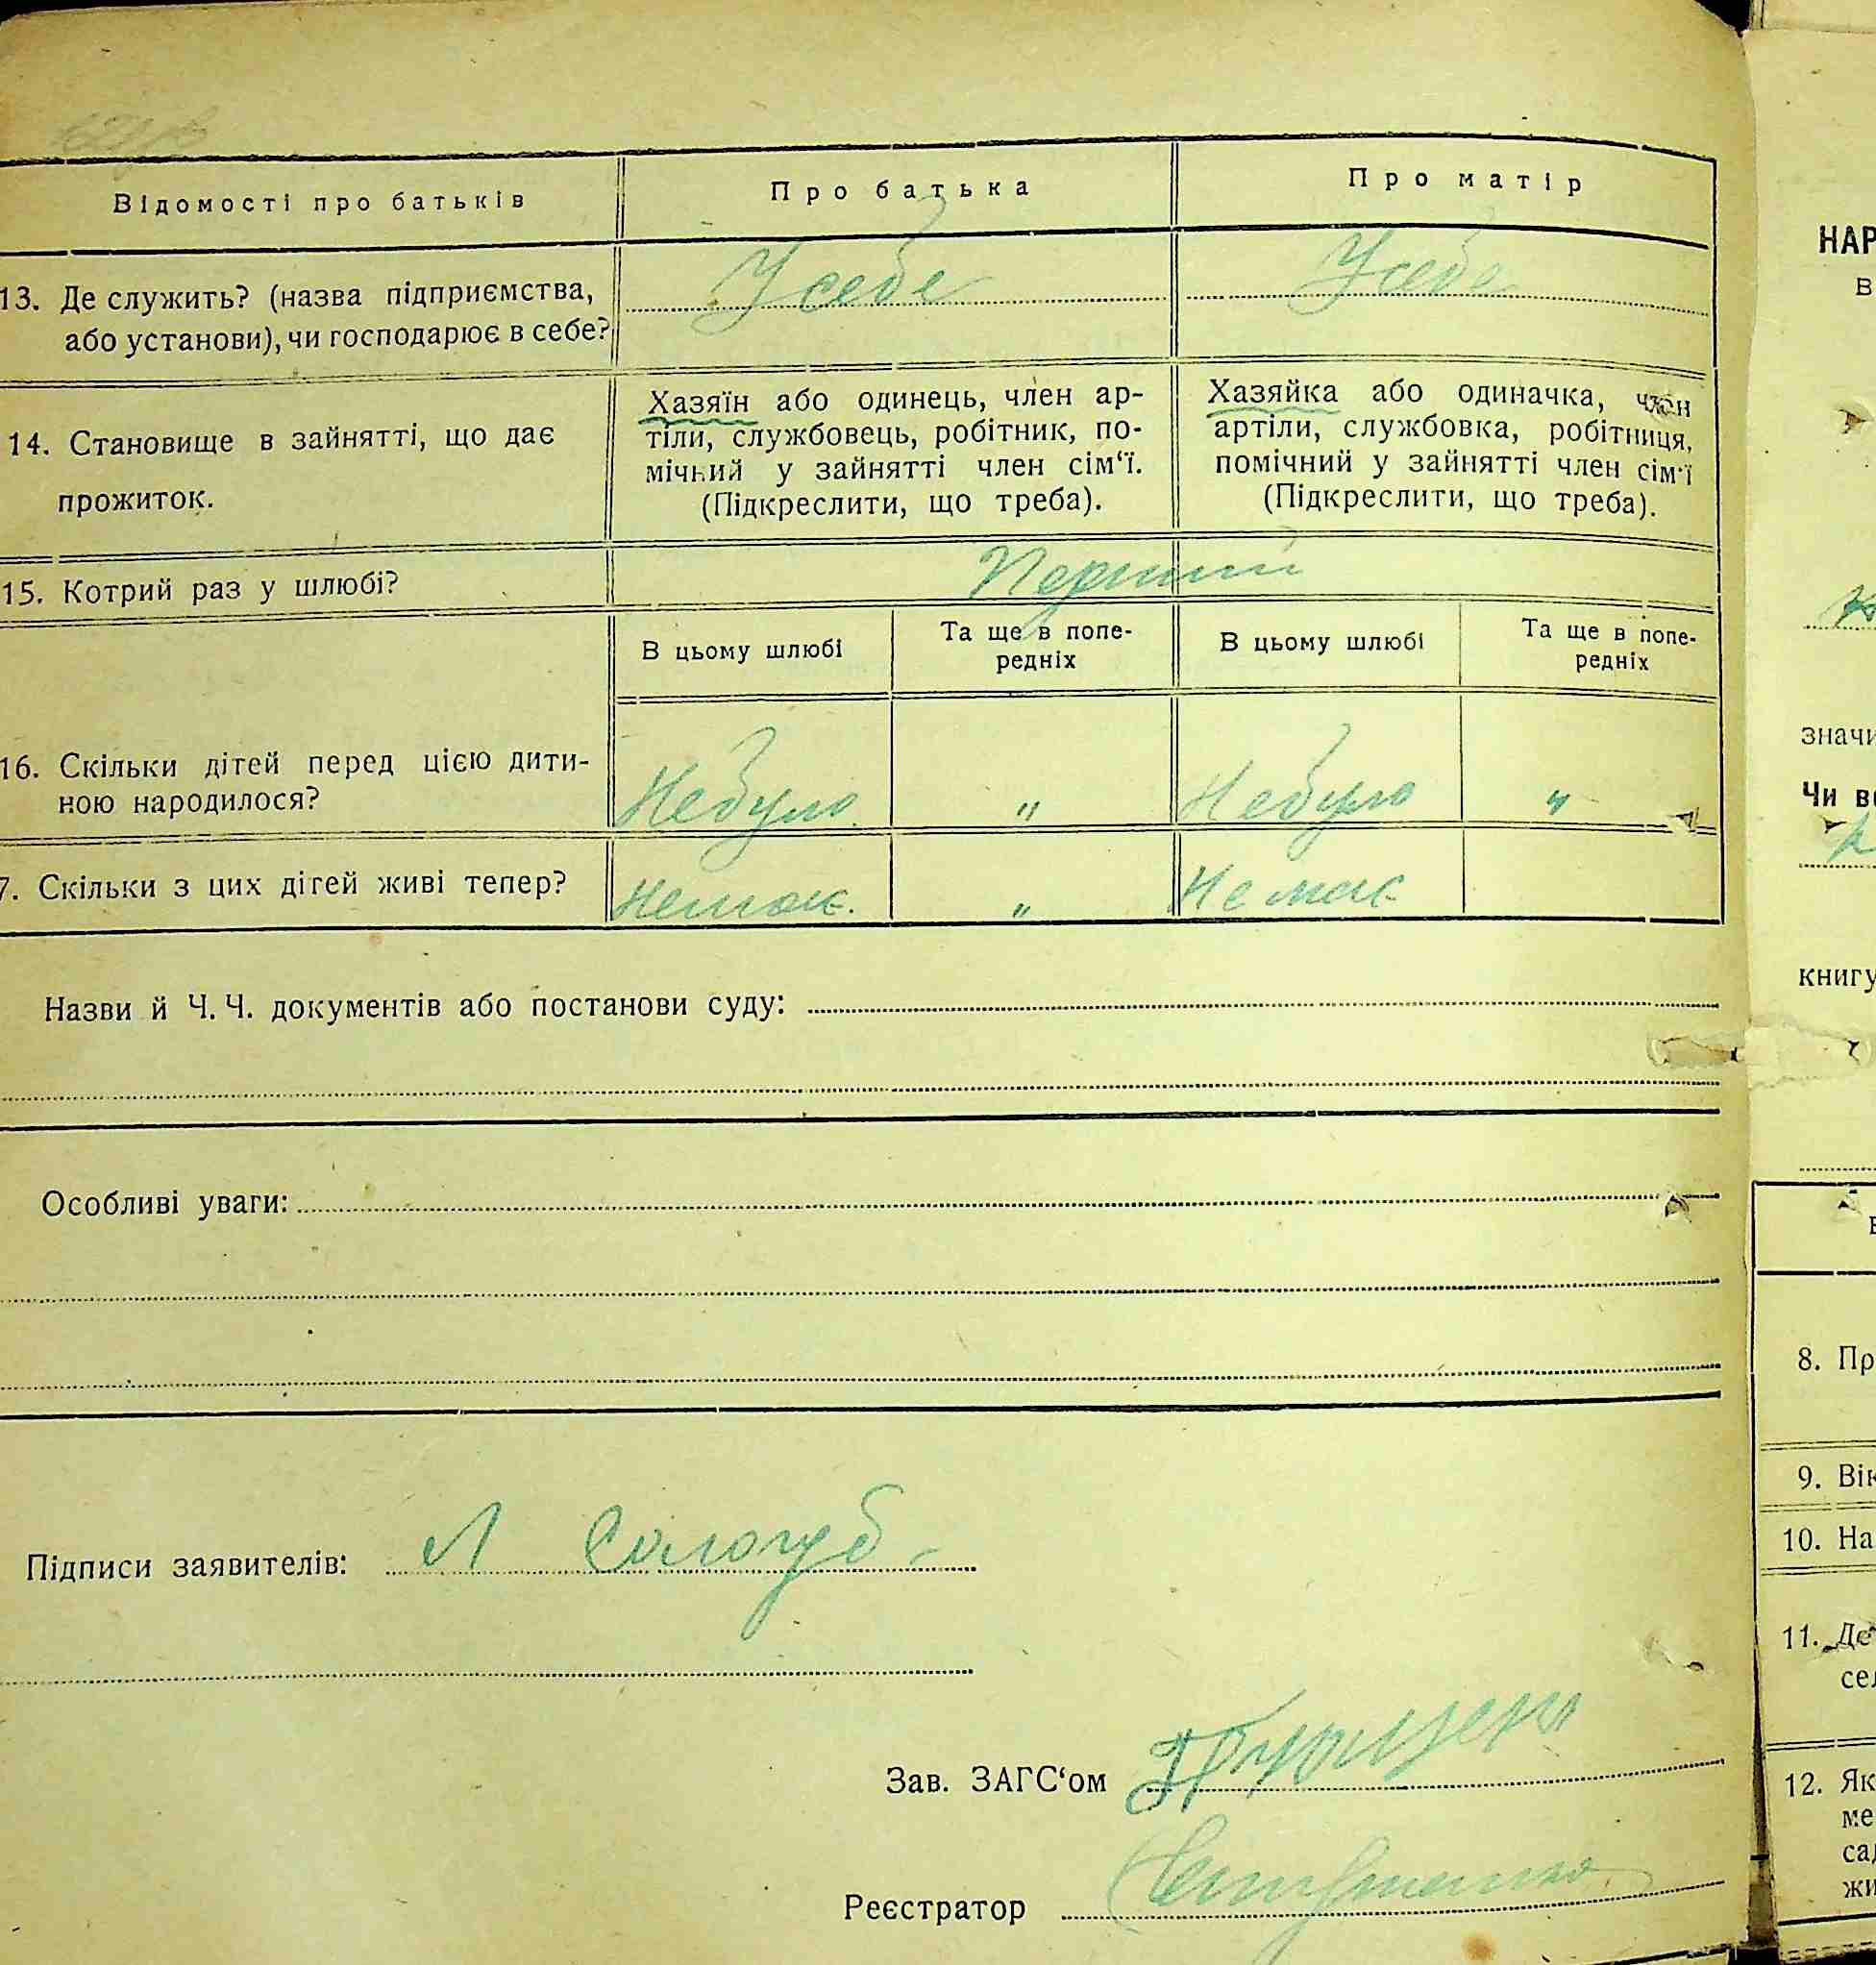 Відомості про батьків
Про батька
Про матір
13. Де служить? (назва підприємства,
або установи), чи господарює в себе?
У себе
У себе
14. Становище в зайнятті, що дає
прожиток.
Хазяїн або одинець, член ар-
тіли, службовець, робітник, по-
мічний у зайнятті член сім‘ї.
(Підкреслити, що треба).
Хазяйка або одиначка, член
артіли, службовка, робітниця,
помічний у зайнятті член сім‘ї
(Підкреслити, що треба).
15. Котрий раз у шлюбі?
Перший
В цьому шлюбі
Та ще в попе-
редніх
В цьому шлюбі
Та ще в попе-
редніх
16. Скільки дітей перед цією дити-
ною народилося?
Небуло
"
Небуло
"
7. Скільки з цих дітей живі тепер?
Немає.
"
Немає
Назви й Ч. Ч. документів або постанови суду:
Особливі уваги:
Підписи заявителів: Л Сологуб
Зав. ЗАГС‘ом
Реєстратор
НАР
В
значи
Чи в
книгу
8. Пр
9. Вік
10. На
11. Де
сел
12. Як
ме
са
жи